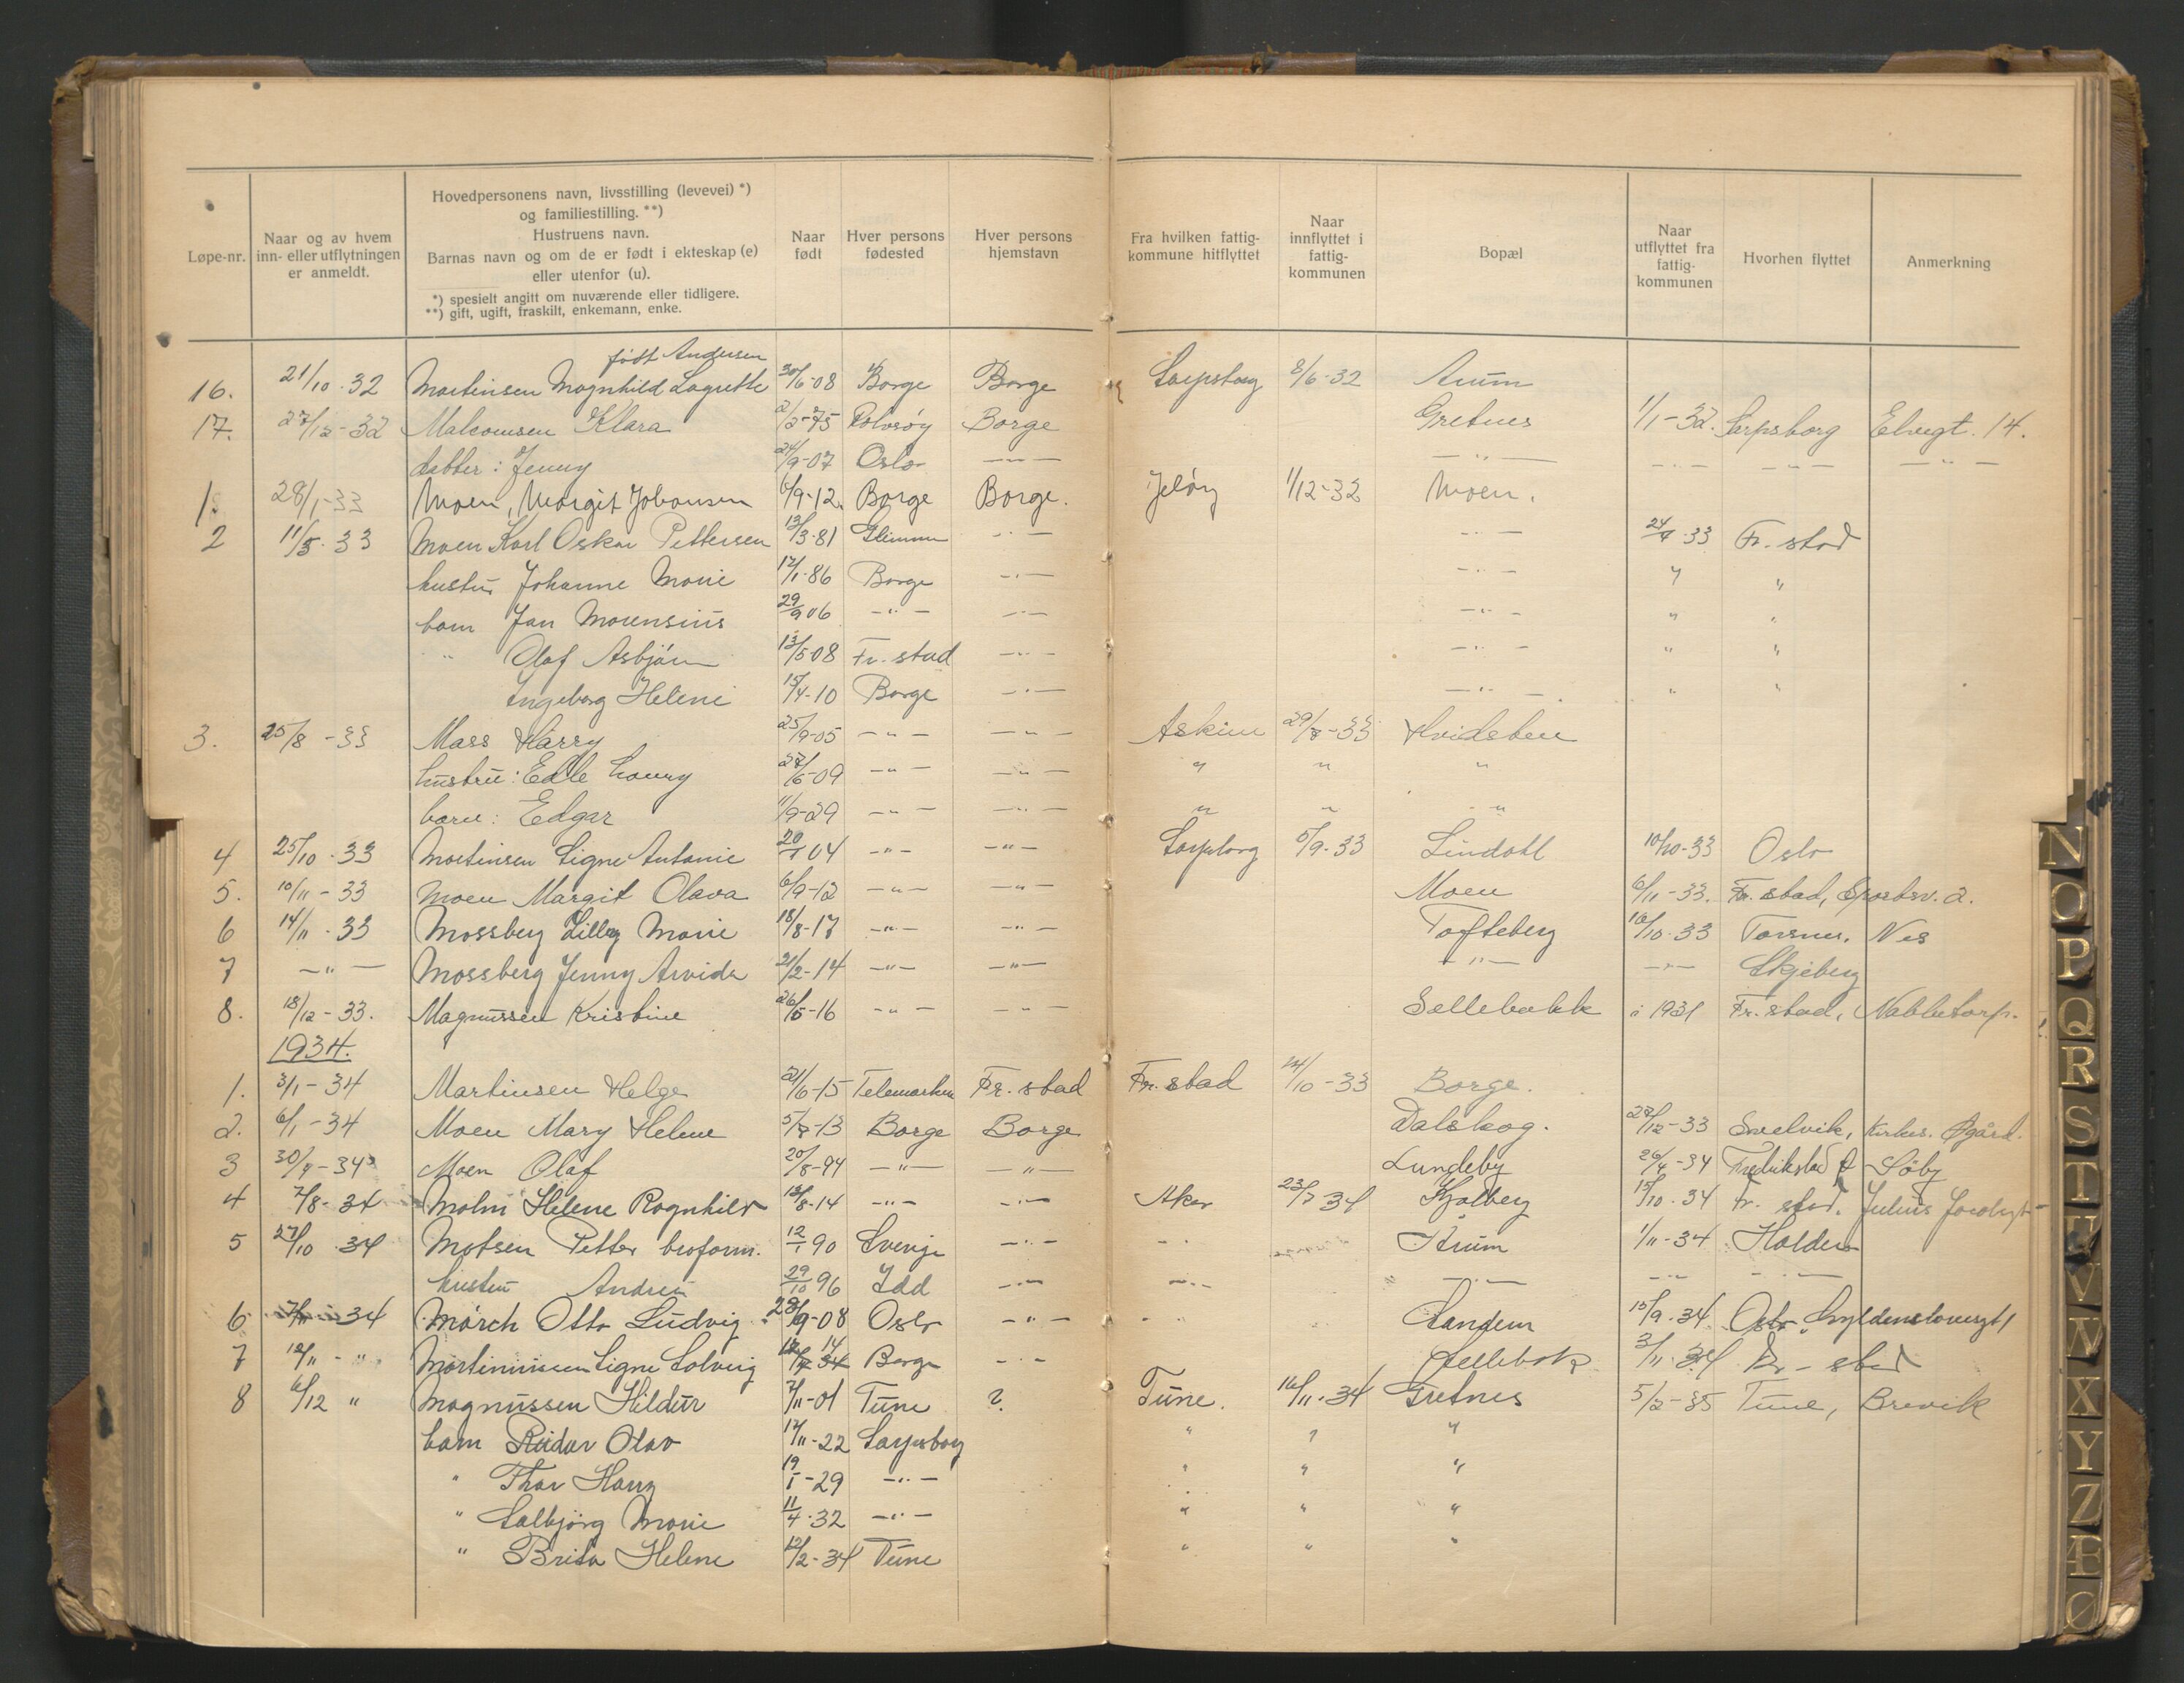 Løpe-nr.
Naar og av hvem inn- eller utflytningen er anmeldt.
Hovedpersonens navn, livsstilling (levevei) *)
og familiestilling. **)
Hustruens navn.
Barnas navn og om de er født i ekteskap (e)
eller utenfor (u).
*) spesielt angitt om nuværende eller tidligere.
**) gift, ugift, fraskilt, enkemann, enke.
Naar født
Hver persons fødested
Hver persons hjemstavn
Fra hvilken fattig-kommune hitflyttet
Naar innflyttet i fattig-kommunen
Bopæl
Naar utflyttet fra fattig-kommunen
Hvorhen flyttet
Anmerkning
født Andersen
16. 21/10-32 Martinsen Magnhild Lagrette 30/6-08 Borge Borge Sarpsborg 8/6-32 Årum
17. 27/12-32 Malcomsen Klara 2/2-75 Rolvsøy Borge Gretnes 1/1-32. Sarpsborg Elvegt. 14.
datter: Jenny 24/9-07 Oslo —"— —"— —"— —"— —"—
1. 28/1-33 Moen, Margit Johansen 6/9-12. Borge Borge. Jeløy 1/12-32 Moen.
2 11/5-33 Moen Karl Oskar Pettersen 13/3-81 Glemmen —"— —"— 24/4-33 Fr. stad
hustru Johanne Marie 12/1-86 Borge —"— —"— " "
barn Jan Morensius 29/9 06 —"— —"— —"— " "
" Olaf Asbjørn 13/5-08 Fr. stad —"— —"— " "
Ingeborg Helene 15/4-10 Borge —"— —"— " "
3. 25/8-33 Mass Harry 25/9-05 —"— —"— Askim 29/7-33 Hvidsten
hustru: Edle Loury 27/6-09 —"— —"— " " "
barn: Edgar 11/9-29 —"— —"— " " "
4 25/10-33 Martinsen Signe Antonie 20/1 04 —"— —"— Sarpsborg 5/9-33 Lindahl 10/10-33 Oslo
5. 10/11-33 Moen Margit Olava 6/9-12 —"— —"— Moen 6/11-33. Fr. stad, Sportsv. 2.
6 14/11-33 Mossberg Lilly Marie 18/8-17 —"— —"— Tofteberg 16/10-33 Torsnes, Nes
7 —"— Mossberg Jenny Arvida 21/2-14 —"— —"— —"— —"— Skjeberg
8. 18/12-33. Magnussen Kristine 26/5-16 —"— —"— Sellebakk i 1931 Fr. stad, Nabbetorp.
1934.
1. 3/1-34 Martinsen Helge 21/6-15 Telemarken Fr. stad Fr. stad 14/10-33 Borge.
2. 6/1-34 Moen Mary Helene 5/7-13 Borge Borge Dalskog. 27/12-33 Svelvik, Kirkes. Øgård.
3 30/4-34 Moen Olaf 20/8-94 —"— —"— Lundeby 26/4-34 Fredrikstad Søby
4 7/8-34 Malm Helene Ragnhild 13/8-14 —"— —"— Aker 23/7 34 Kjølberg 15/10-34 Fr. stad. Julius
5 27/10-34 Matsen Petter broform. 12/1 90 Sverige —"— —"— Årum 1/11-34 Halden
hustru Andrea 29/10 96 Idd —"— —"— —"— —"— —"—
6 7/11 34 Mørch Otto Ludvig 28/9-08 Oslo —"— " Sandem 15/9-34. Oslo, Gyldenløvesgt
7 12/11-" Martinussen Signe Solveig 14 Borge —"— Sellebak 3/11-34 Fr-stad
8 6/12 " Magnussen Hildur 7/11-01 Tune ? Tune. 16/11-34 Gretnes 5/2-35 Tune, Brevik
barn Reidar Olav 14/11-22 Sarpsborg " " "
" Thor Harry 19/1-29 —"— " " "
" Solbjørg Marie 11/4-32 —"— " " "
" Brita Helene 12/2-34 Tune " " "
N
O
P
Q
R
S
T
U
V
W
X
Y
Z
Æ
Ø